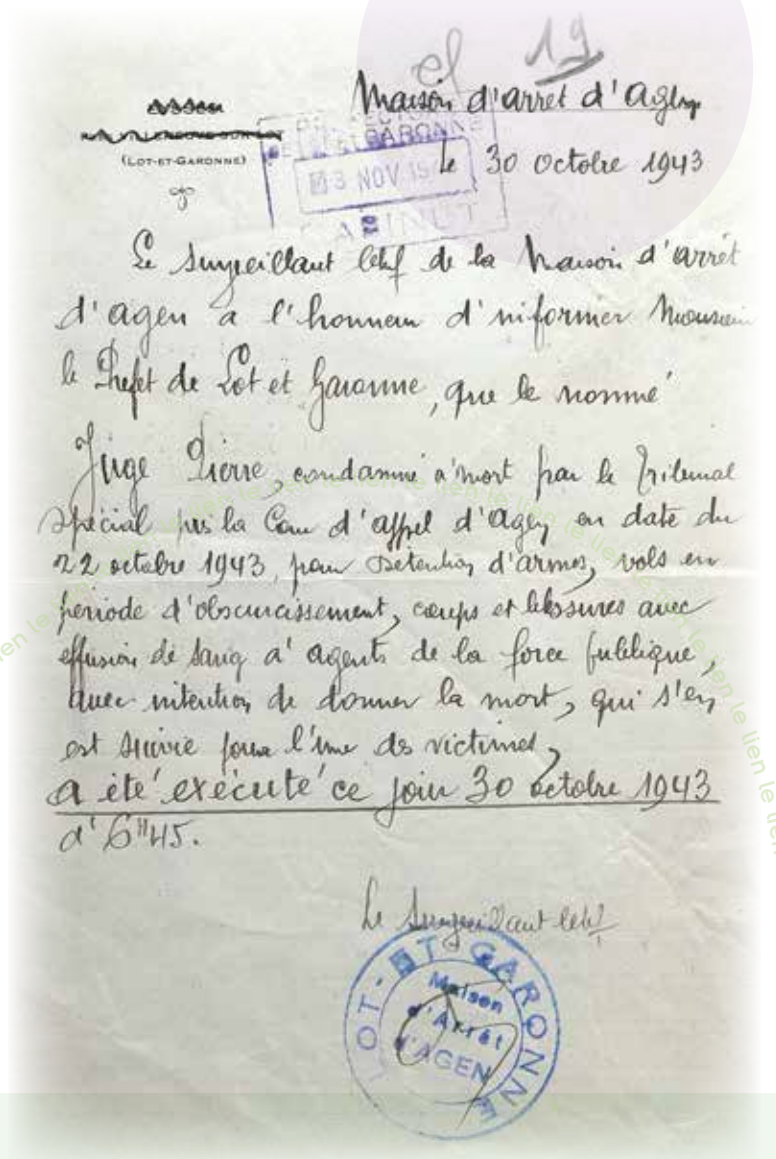 19
Maison d'arret d'Agen
(LOT-ET-GARONNE)
le 30 octobre 1943
GARONNE
3 NOV 19
CABINET
Le Surveillant Chef de la Maison d'arrêt
d'agen a l'honneur d'informer Monsieur
le Préfet de Lot et Garonne, que le nommé
Pierre, condamné à mort par le Tribunal
Spécial près la Cour d'appel d'Agen en date du
22 octobre 1943, pour détention d'armes, vols en
période d'obscurcissement, coups et blessures avec
effusion de sang à agents de la force publique,
avec intention de donner la mort, qui s'en
est suivie pour l'une des victimes,
a été exécuté ce jour 30 octobre 1943
à 6H45.
Le Surveillant Chef
LOT-ET GARONNE
Maison
d'Arrêt
d'AGEN